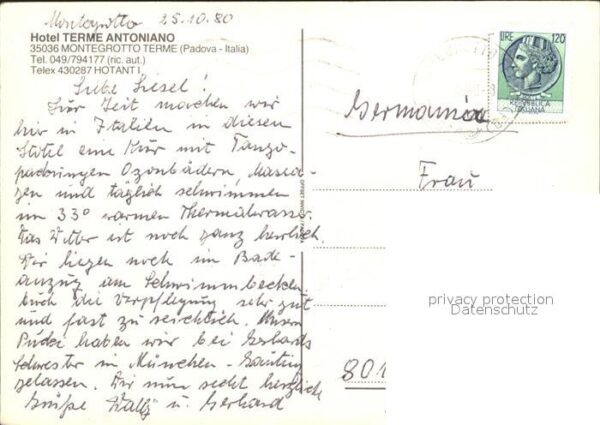 Montegrotto 25.10.80
Hotel TERME ANTONIANO
35036 MONTEGROTTO TERME (Padova - Italia)
Tel. 049/794177 (ric. aut.)
Telex 430287 HOTANT I
Liebe Liesel!
Zur Zeit machen wir
hier in Italien in diesem
Hotel eine Kur mit Fango-
packungen Ozonbädern, Massa-
gen und täglich schwimmen
im 33° warmen Thermalwasser.
Das Wetter ist noch ganz herrlich.
Wir liegen noch im Bade-
anzug am Schwimmbecken.
Auch die Verpflegung sehr gut
und fast zu reichlich. Unsern
Pudel haben wir bei Gerhards
Schwester in München - Gauting
gelassen. Dir nun recht herzlich
Grüße Wally u. Gerhard
LIRE 120
REPUBBLICA
ITALIANA
Germania
Frau
privacy protection
Datenschutz
801